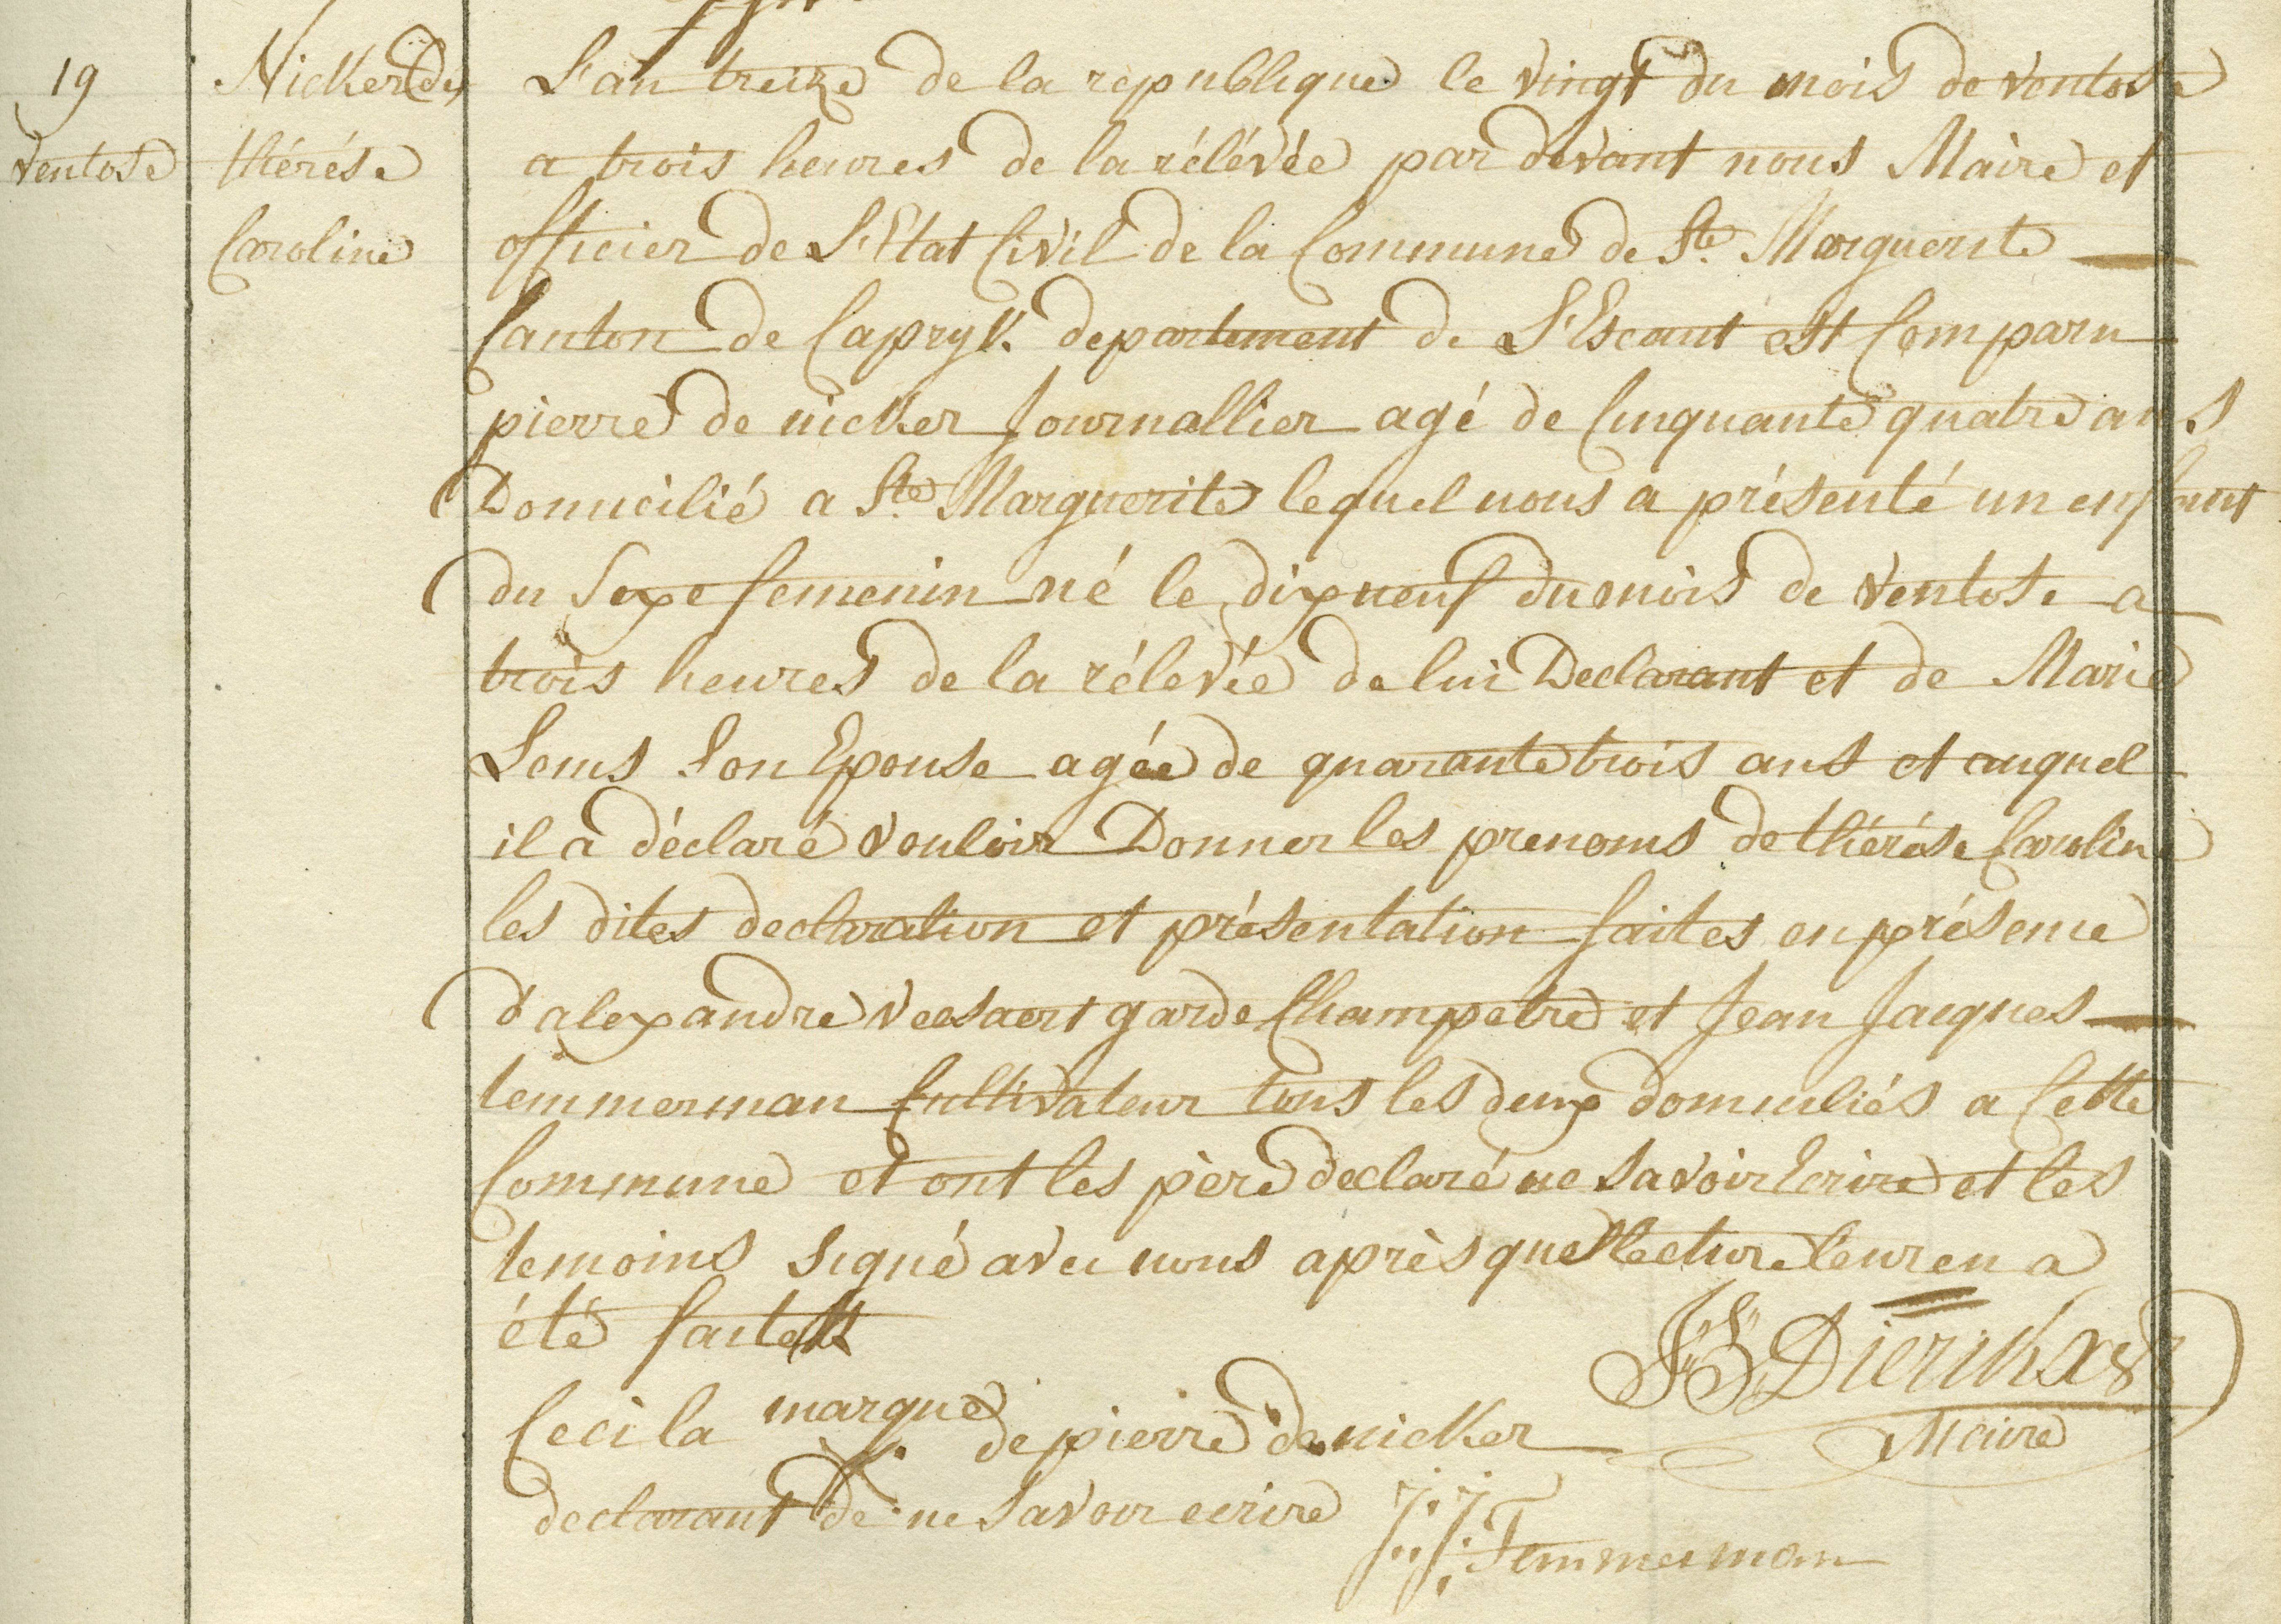 19
ventose
Nicker (de)
thérése
Caroline
L'an treize de la republique le vingt du mois de ventose
a trois heures de la rélévée par devant nous Maire et
officier de L'Etat Civil de la Commune de Ste Marguerite
Canton de Capryk departement de L'Escaut est Comparu
pierre de nicker Journallier agé de Cinquante quatre ans
Domicilié a Ste Marguerite lequel nous a présenté un enfant
du Sexe femenin né le dixneuf du mois de ventose a
trois heures de la rélevée de lui Declarant et de Marie
Lems Son Epouse agée de quarante trois ans et auquel
il a déclaré vouloir Donner les prenoms de thérése Caroline
les dites declaration et présentation faites en présence
d'alexandre Veesaert garde Champetre et Jean Jacques
temmerman Cultivateur tous les deux domiciliés a Cette
Commune et ont les père declaré ne savoir Ecrire et les
temoins signé avec nous après que lecture leur en a
été faite
JB Dierikx
Ceci la marque de pierre de nicker
Maire
declarant de ne savoir ecrire
J:J: Temmerman